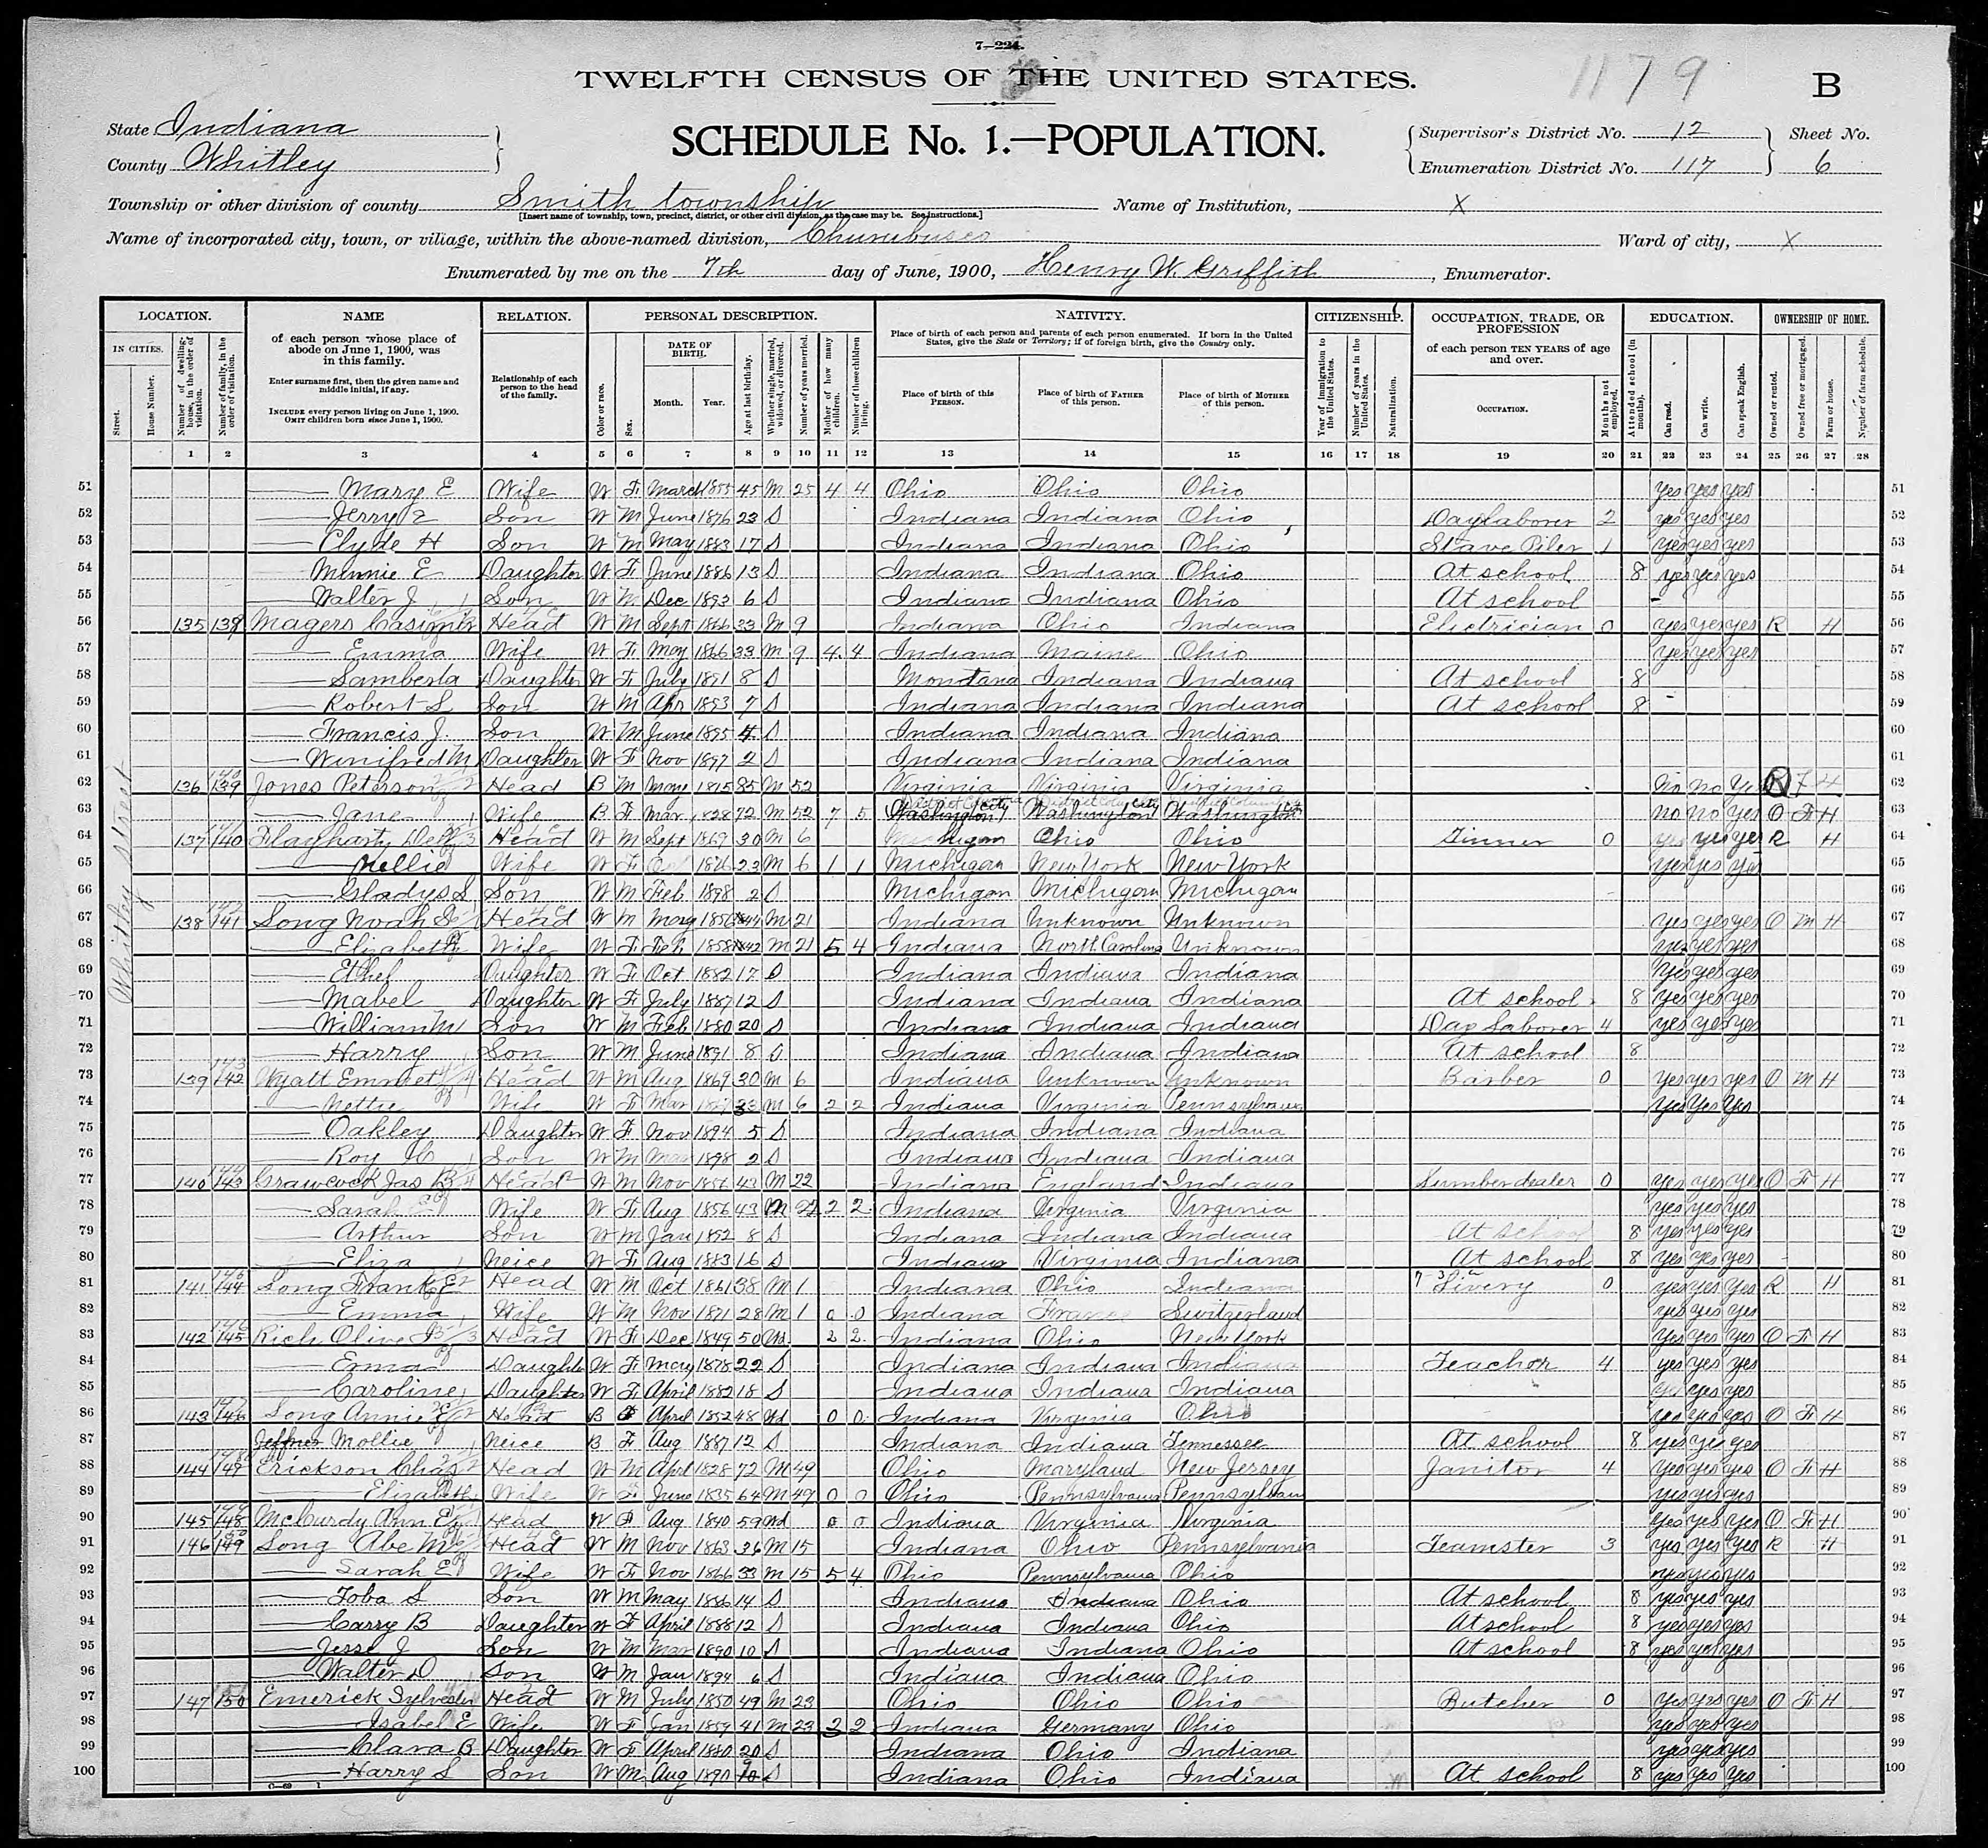 7—224.
1179
B
TWELFTH CENSUS OF THE UNITED STATES.
State Indiana
County Whitley
SCHEDULE No. 1.—POPULATION.
Supervisor's District No. 12 Sheet No.
Enumeration District No. 117 6
Township or other division of county Smith township Name of Institution, X
[Insert name of township, town, precinct, district, or other civil division, as the case may be. See instructions.]
Name of incorporated city, town, or village, within the above-named division, Churubusco Ward of city, X
Enumerated by me on the 7th day of June, 1900, Henry W. Griffith, Enumerator.
LOCATION. NAME RELATION. PERSONAL DESCRIPTION. NATIVITY. CITIZENSHIP. OCCUPATION, TRADE, OR PROFESSION EDUCATION. OWNERSHIP OF HOME.
IN CITIES. Street. House Number. Number of dwelling-house, in the order of visitation. Number of family, in the order of visitation.
of each person whose place of abode on June 1, 1900, was in this family.
Enter surname first, then the given name and middle initial, if any.
INCLUDE every person living on June 1, 1900. OMIT children born since June 1, 1900.
Relationship of each person to the head of the family.
Color or race. Sex. DATE OF BIRTH. Month. Year. Age at last birthday. Whether single, married, widowed, or divorced. Number of years married. Mother of how many children. Number of these children living.
Place of birth of each person and parents of each person enumerated. If born in the United States, give the State or Territory; if of foreign birth, give the Country only.
Place of birth of this PERSON. Place of birth of FATHER of this person. Place of birth of MOTHER of this person.
Year of immigration to the United States. Number of years in the United States. Naturalization.
of each person TEN YEARS of age and over.
OCCUPATION. Months not employed.
Attended school (in months). Can read. Can write. Can speak English.
Owned or rented. Owned free or mortgaged. Farm or house. Number of farm schedule.
1 2 3 4 5 6 7 8 9 10 11 12 13 14 15 16 17 18 19 20 21 22 23 24 25 26 27 28
Whitley Street
51 Mary E Wife W F March 1855 45 M 25 4 4 Ohio Ohio Ohio yes yes yes 51
52 Jerry Son W M June 1876 23 S Indiana Indiana Ohio Day laborer 2 yes yes yes 52
53 Clyde H Son W M May 1883 17 S Indiana Indiana Ohio Stave Piler 1 yes yes yes 53
54 Minnie E Daughter W F June 1886 13 S Indiana Indiana Ohio At school 8 yes yes yes 54
55 Walter J Son W M Dec 1893 6 S Indiana Indiana Ohio At school 55
56 135 139 Magers Casimir Head W M Sept 1866 33 M 9 Indiana Ohio Indiana Electrician 0 yes yes yes R H 56
57 Emma Wife W F May 1866 33 M 9 4 4 Indiana Maine Ohio yes yes yes 57
58 Samberta Daughter W F July 1891 8 S Montana Indiana Indiana At school 8 58
59 Robert L Son W M Apr 1893 7 S Indiana Indiana Indiana At school 8 59
60 Francis J. Son W M June 1895 4 S Indiana Indiana Indiana 60
61 Winifred M Daughter W F Nov 1897 2 S Indiana Indiana Indiana 61
62 136 139 Jones Peterson Head B M May 1815 85 M 52 Virginia Virginia Virginia No No Yes F H 62
63 Jane Wife B F Mar 1828 72 M 52 7 5 Washington City Washington City Washington no no yes O F H 63
64 137 140 Flayharty Head W M Sept 1869 30 M 6 Michigan Ohio Ohio Tinner 0 yes yes yes R H 64
65 Nellie Wife W F 1876 23 M 6 1 1 Michigan New York New York yes yes yes 65
66 Gladys L Son W M Feb 1898 2 S Michigan Michigan Michigan 66
67 138 141 Long Noah Head W M May 1856 44 M 21 Indiana Unknown Unknown yes yes yes O M H 67
68 Elizabeth Wife W F Feb 1858 42 M 21 5 4 Indiana North Carolina Unknown yes yes yes 68
69 Ethel Daughter W F Oct 1882 17 S Indiana Indiana Indiana yes yes yes 69
70 Mabel Daughter W F July 1887 12 S Indiana Indiana Indiana At school 8 yes yes yes 70
71 William M Son W M Feb 1880 20 S Indiana Indiana Indiana Day Laborer 4 yes yes yes 71
72 Harry Son W M June 1891 8 S Indiana Indiana Indiana At school 8 72
73 139 142 Wyatt Emmet Head W M Aug 1869 30 M 6 Indiana Unknown Unknown Barber 0 yes yes yes O M H 73
74 Nettie Wife W F Mar 33 M 6 2 2 Indiana Virginia Pennsylvania yes yes yes 74
75 Oakley Daughter W F Nov 1894 5 S Indiana Indiana Indiana 75
76 Roy Son W M 1898 2 S Indiana Indiana Indiana 76
77 140 143 Grawcock Jas Head W M Nov 1856 43 M 22 Indiana England Indiana Lumber dealer 0 yes yes yes O F H 77
78 Sarah Wife W F Aug 1856 43 M 22 2 2 Indiana Virginia Virginia yes yes yes 78
79 Arthur Son W M Jan 1892 8 S Indiana Indiana Indiana At school 8 yes yes yes 79
80 Eliza Neice W F Aug 1883 16 S Indiana Virginia Indiana At school 8 yes yes yes 80
81 141 144 Long Frank E Head W M Oct 1861 38 M 1 Indiana Ohio Indiana Livery 0 yes yes yes R H 81
82 Emma Wife W M Nov 1871 28 M 1 0 0 Indiana France Switzerland yes yes yes 82
83 142 145 Rich Olive Head W F Dec 1849 50 Wd 2 2 Indiana Ohio New York yes yes yes O F H 83
84 Erma Daughter W F May 1878 22 S Indiana Indiana Indiana Teacher 4 yes yes yes 84
85 Caroline Daughter W F April 1882 18 S Indiana Indiana Indiana yes yes 85
86 143 146 Long Annie Head B F April 1852 48 Wd 0 0 Indiana Virginia Ohio yes yes yes O F H 86
87 Mollie Neice B F Aug 1887 12 S Indiana Indiana Tennessee At school 8 yes yes yes 87
88 144 147 Erickson Chas Head W M April 1828 72 M 49 Ohio Maryland New Jersey Janitor 4 yes yes yes O F H 88
89 Elizabeth Wife W F June 1835 64 M 49 0 0 Ohio Pennsylvania Pennsylvania yes yes yes 89
90 145 148 McCurdy Ann E Head W F Aug 1840 59 Wd 0 0 Indiana Virginia Virginia yes yes yes O F H 90
91 146 149 Long Abe M Head W M Nov 1863 36 M 15 Indiana Ohio Pennsylvania Teamster 3 yes yes yes R H 91
92 Sarah E Wife W F Nov 1866 33 M 15 5 4 Ohio Pennsylvania Ohio yes yes yes 92
93 Toba S Son W M May 1886 14 S Indiana Indiana Ohio At school 8 yes yes yes 93
94 Carry B Daughter W F April 1888 12 S Indiana Indiana Ohio At school 8 yes yes yes 94
95 Jesse J Son W M Mar 1890 10 S Indiana Indiana Ohio At school 8 yes yes yes 95
96 Walter D Son W M Jan 1894 6 S Indiana Indiana Ohio 96
97 147 150 Emerick Sylvester Head W M July 1850 49 M 23 Ohio Ohio Ohio Butcher 0 yes yes yes O F H 97
98 Isabel E Wife W F Jan 1859 41 M 23 3 2 Indiana Germany Ohio yes yes yes 98
99 Clara B Daughter W F April 1880 20 S Indiana Ohio Indiana yes yes yes 99
100 Harry L Son W M Aug 1890 9 S Indiana Ohio Indiana At school 8 yes yes yes 100
C—69 1